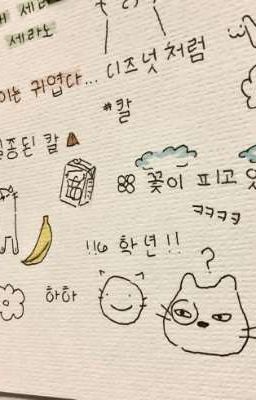 세라
세라노
이는 귀엽다... 디즈넛처럼
#칼
종된 칼
꽃이 피고
ㅋㅋㅋㅋ
!!6학년!!
?
하하